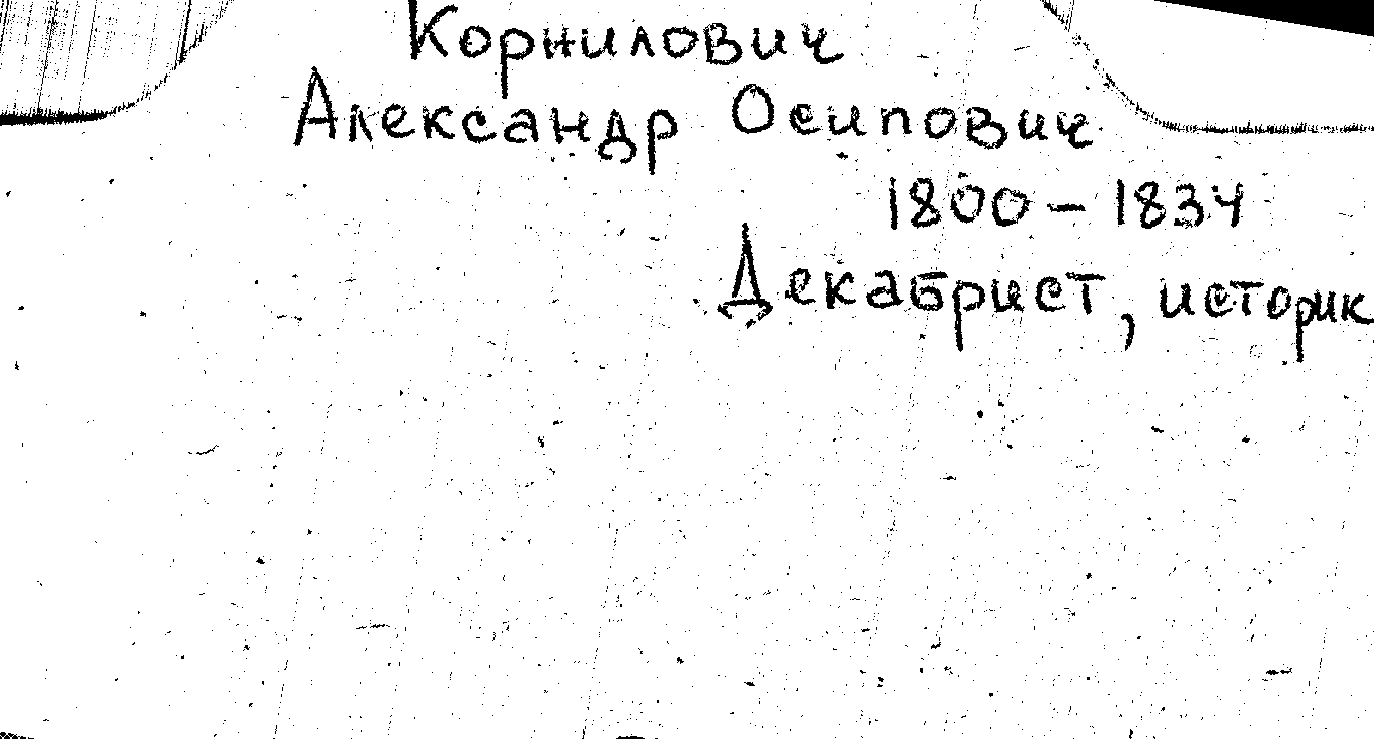 Корнилович
Александр Осипович
1800 – 1834
Декабрист, историк